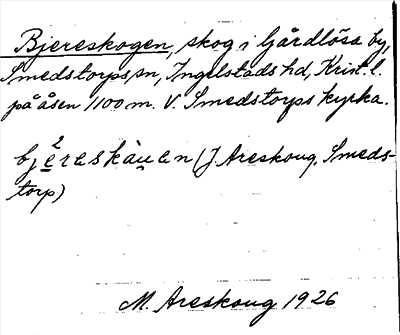 Bjereskogen, skog i Gårdlösa by,
Smedstorps sn, Ingelstads hd, Krist. l.
på åsen 1100 m. V. Smedstorps kyrka.
(J. Areskoug, Smeds-
torp)
M. Areskoug 1926